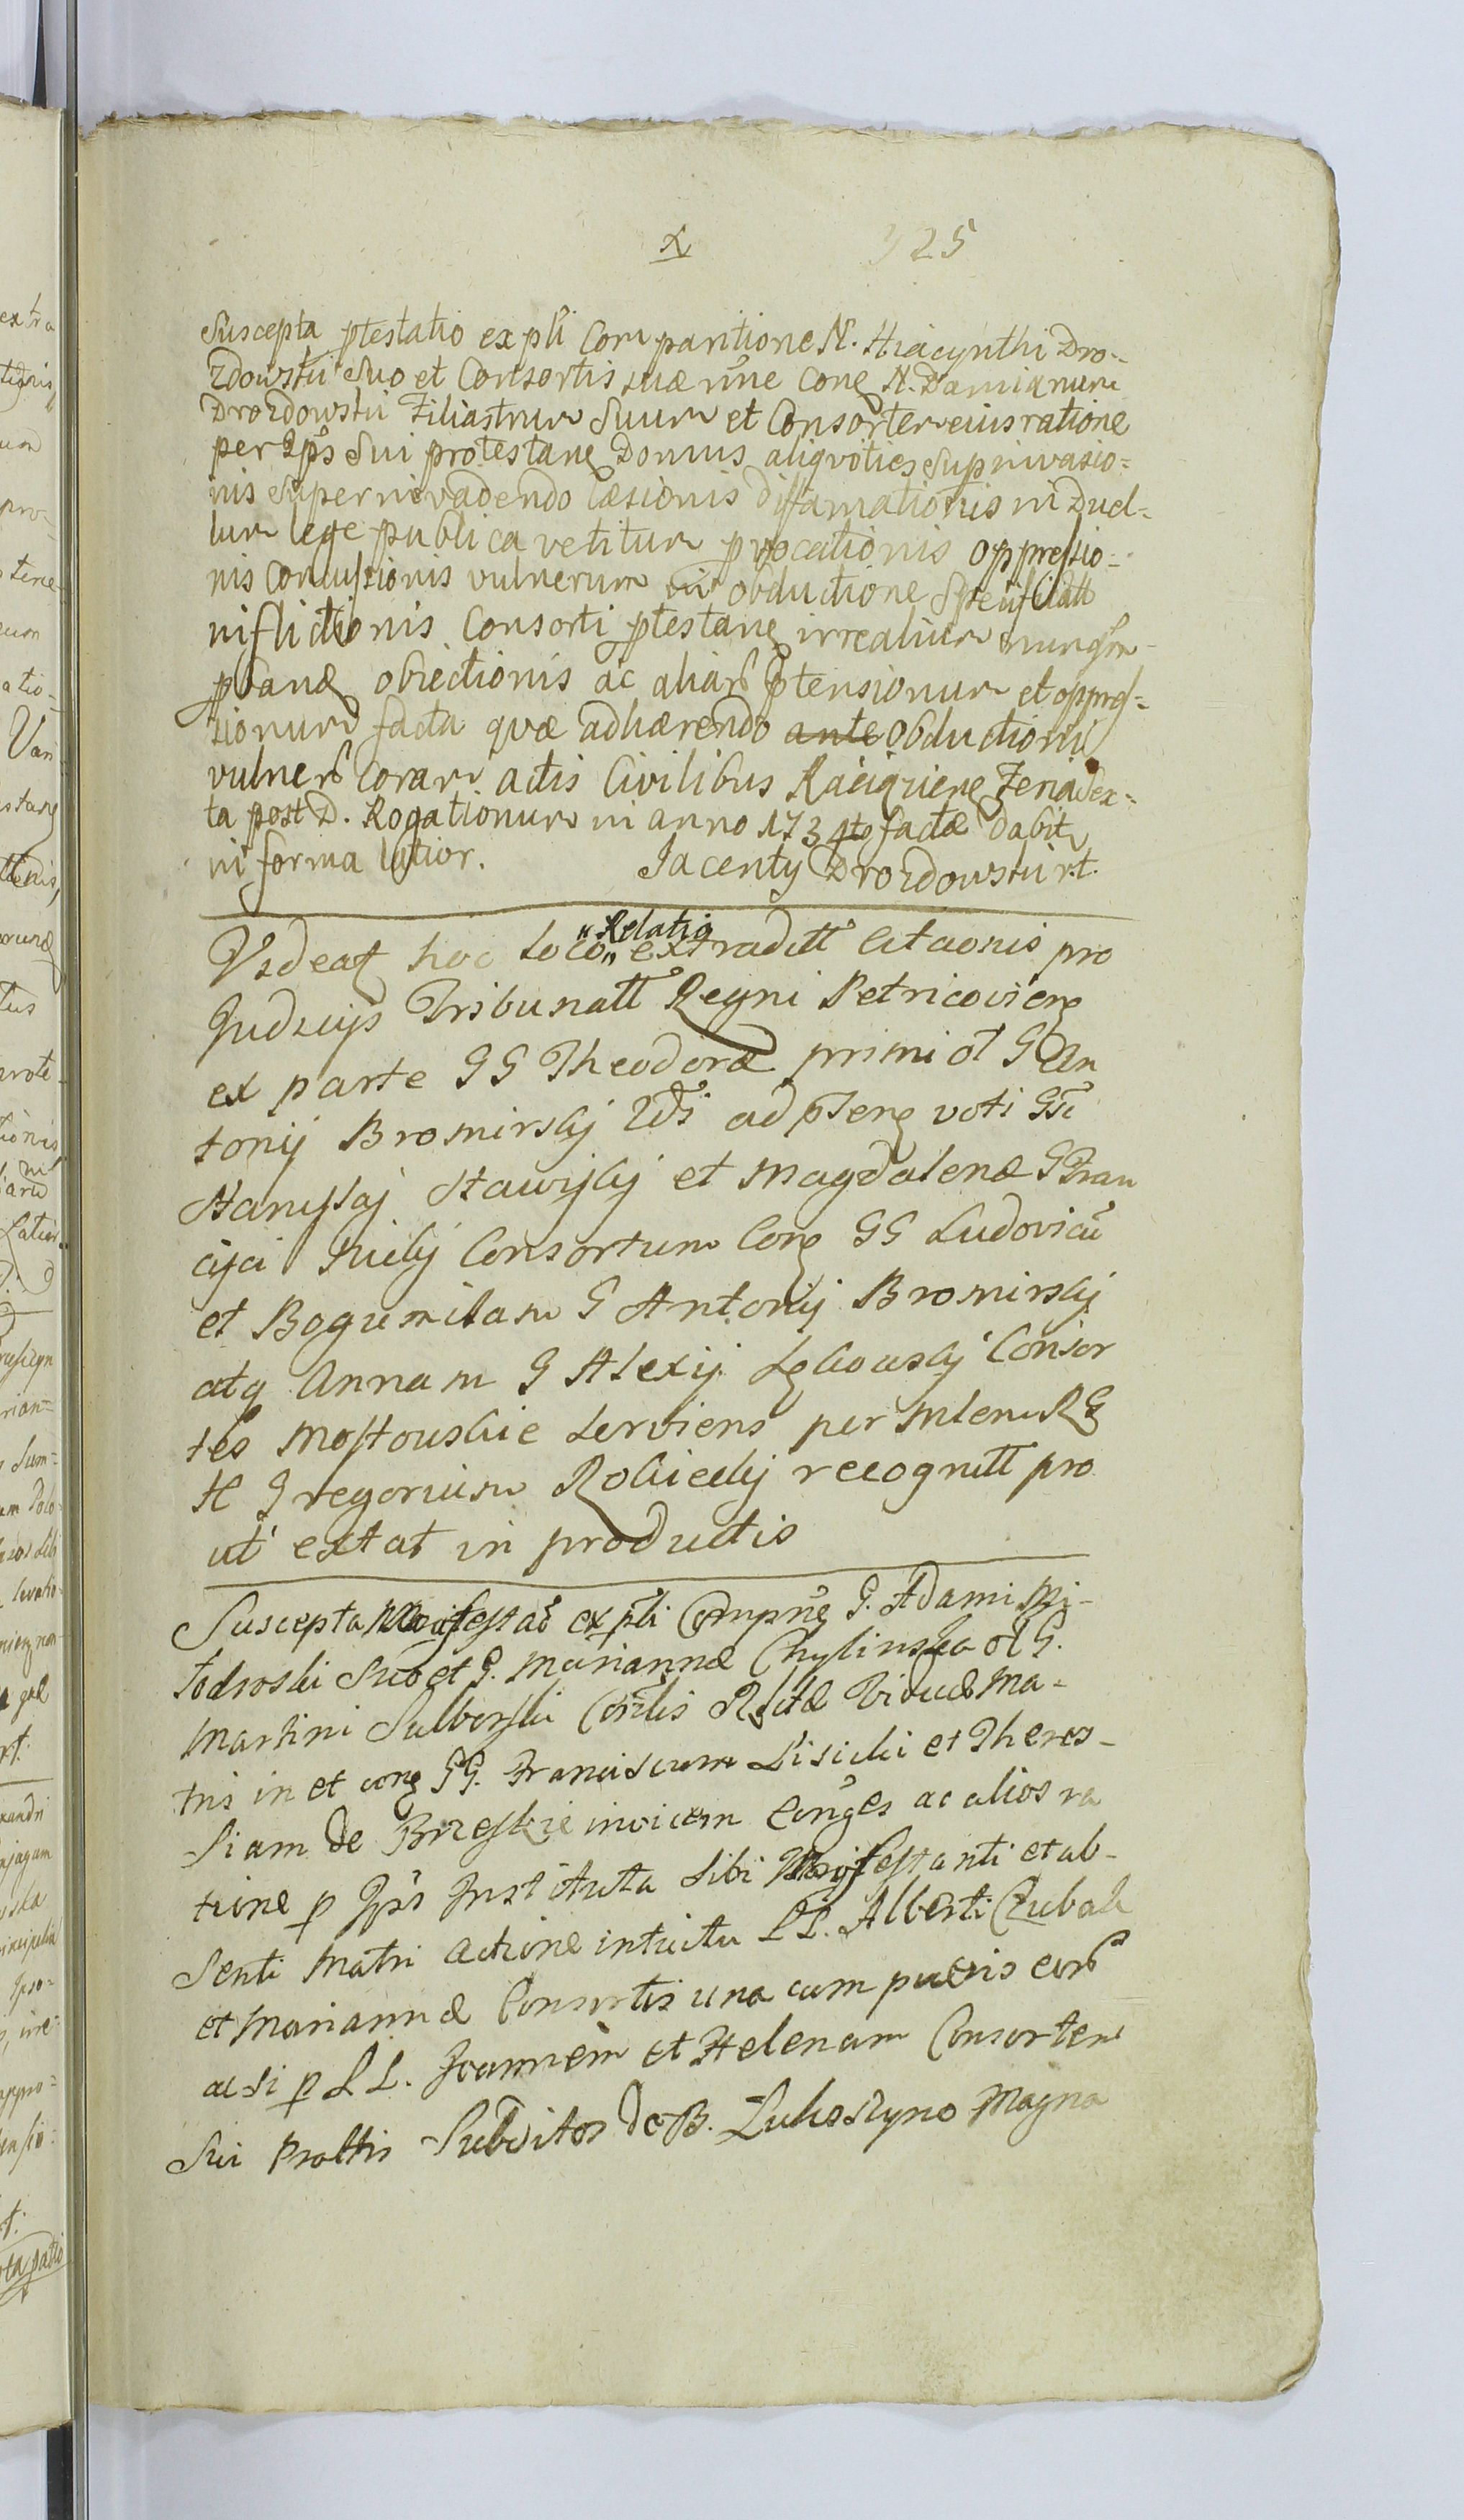 x 325
Suscepta ptestatio ex pti Comparitione N. Hiacynthi Dro-
zdowski Suo et Consortis suæ nne Cong N. Damianum
Drozdowski Filiastrum Suum et Consortem eius ratione
per Ips Sui protestang Domus aliqvoties Supinvasio=
nis Super invadendo Læsionis diffamationis in Duel=
lum lege publica vetitum pvocationis oppressio=
nis Concussionis vulnerum in obductione Specificatt
inflictionis Consorti ptestang irrealium
pband obiectionis ac aliarum ptensionum et oppres=
sionum facta qvæ adhærendo ante Obductioni
vulnerum Coram actis Civilibus Raciqzieng Feria Sex=
ta post D. Rogationum in anno 1734to factæ dabit
in forma latior. Jacenty Drozdowski rt.
Videat hoc loco „Relatio„ extraditt Citaonis pro
Judicijs Tribunatt Regni Petricovieng
ex parte GG Theodoræ primi ol G An
tonij Bromirskj 2di ad pseng voti Gsi
Stanislaj Stawiskj et Magdalenæ G Fran
cisci Consortum Cong GG Ludovicu
et Bogumilam G Antonij Bromirskj
atq Annam G Alexij Consor
tes Mostouskie Serviens per Mlem RG
H Gregorium Robieckj recognitt pro
ut extat in productis
Suscepta Manifestao ex pti Compne G. Adami Mi-
todroski Suo et G. Mariannæ Chylinska ol G.
Martini Sulborski Conlis Rlictæ Viduæ Ma-
tris in et cong GG. Franciscum Lisicki et Theres-
siam de Brzeskie invicem Conges ac alios ra
tione p Ips Instituta Sibi Manifestanti et ab-
senti Matri actione intuitu LL. Alberti Czubak
et Mariannæ Consortis una cum pueris eorum
acsi p LL. Joannem et Helenam Consortem
Sui Prottis Subditos de B. Lukoszyno Magna